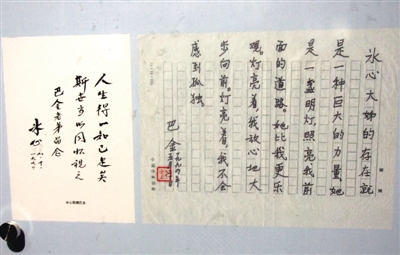 冰心大姊的存在就
是一种巨大的力量,她
是一盏明灯,照亮我前
面的道路。她比我更乐
观。灯亮着,我放心地大
步向前。灯亮着,我不会
感到孤独。
巴金
一九九四年
人生得一知己足矣
斯世当以同怀视之
巴金老弟留念
冰心